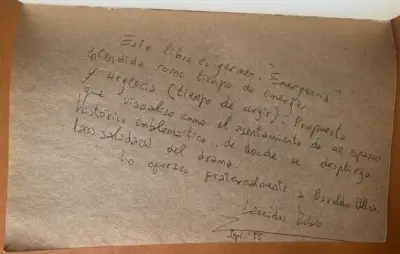 Este libro es germen. "Emergencia"
entendida como tiempo de emerger
y urgencia (tiempo de urgir). Propuesta
que visualizo como el asentamiento de un espacio
histórico emblemático, de donde se despliega
la(s) salida(s) del drama.
Lo ofrezco fraternalmente a Osvaldo
Leonidas